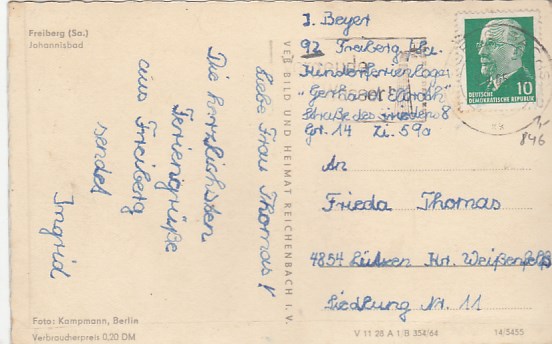 Freiberg (Sa.)
Johannisbad
Liebe Frau Thomas!
Die herzlichsten
Feriengrüße
aus Freiberg
sendet
Ingrid
Foto: Kampmann, Berlin
Verbraucherpreis 0,20 DM
VEB BILD UND HEIMAT REICHENBACH I. V.
I. Beyer
92 Freiberg / Sa.
Kinderferienlager
"Gerhard
Straße des Friedens 8
Grt. 14 Zi. 59a
10
DEUTSCHE
DEMOKRATISCHE REPUBLIK
846
An
Frieda Thomas
4854 Lützen Kr. Weißenfels
Siedlung Nr. 11
V 11 28 A 1 B 354/64
14/5455